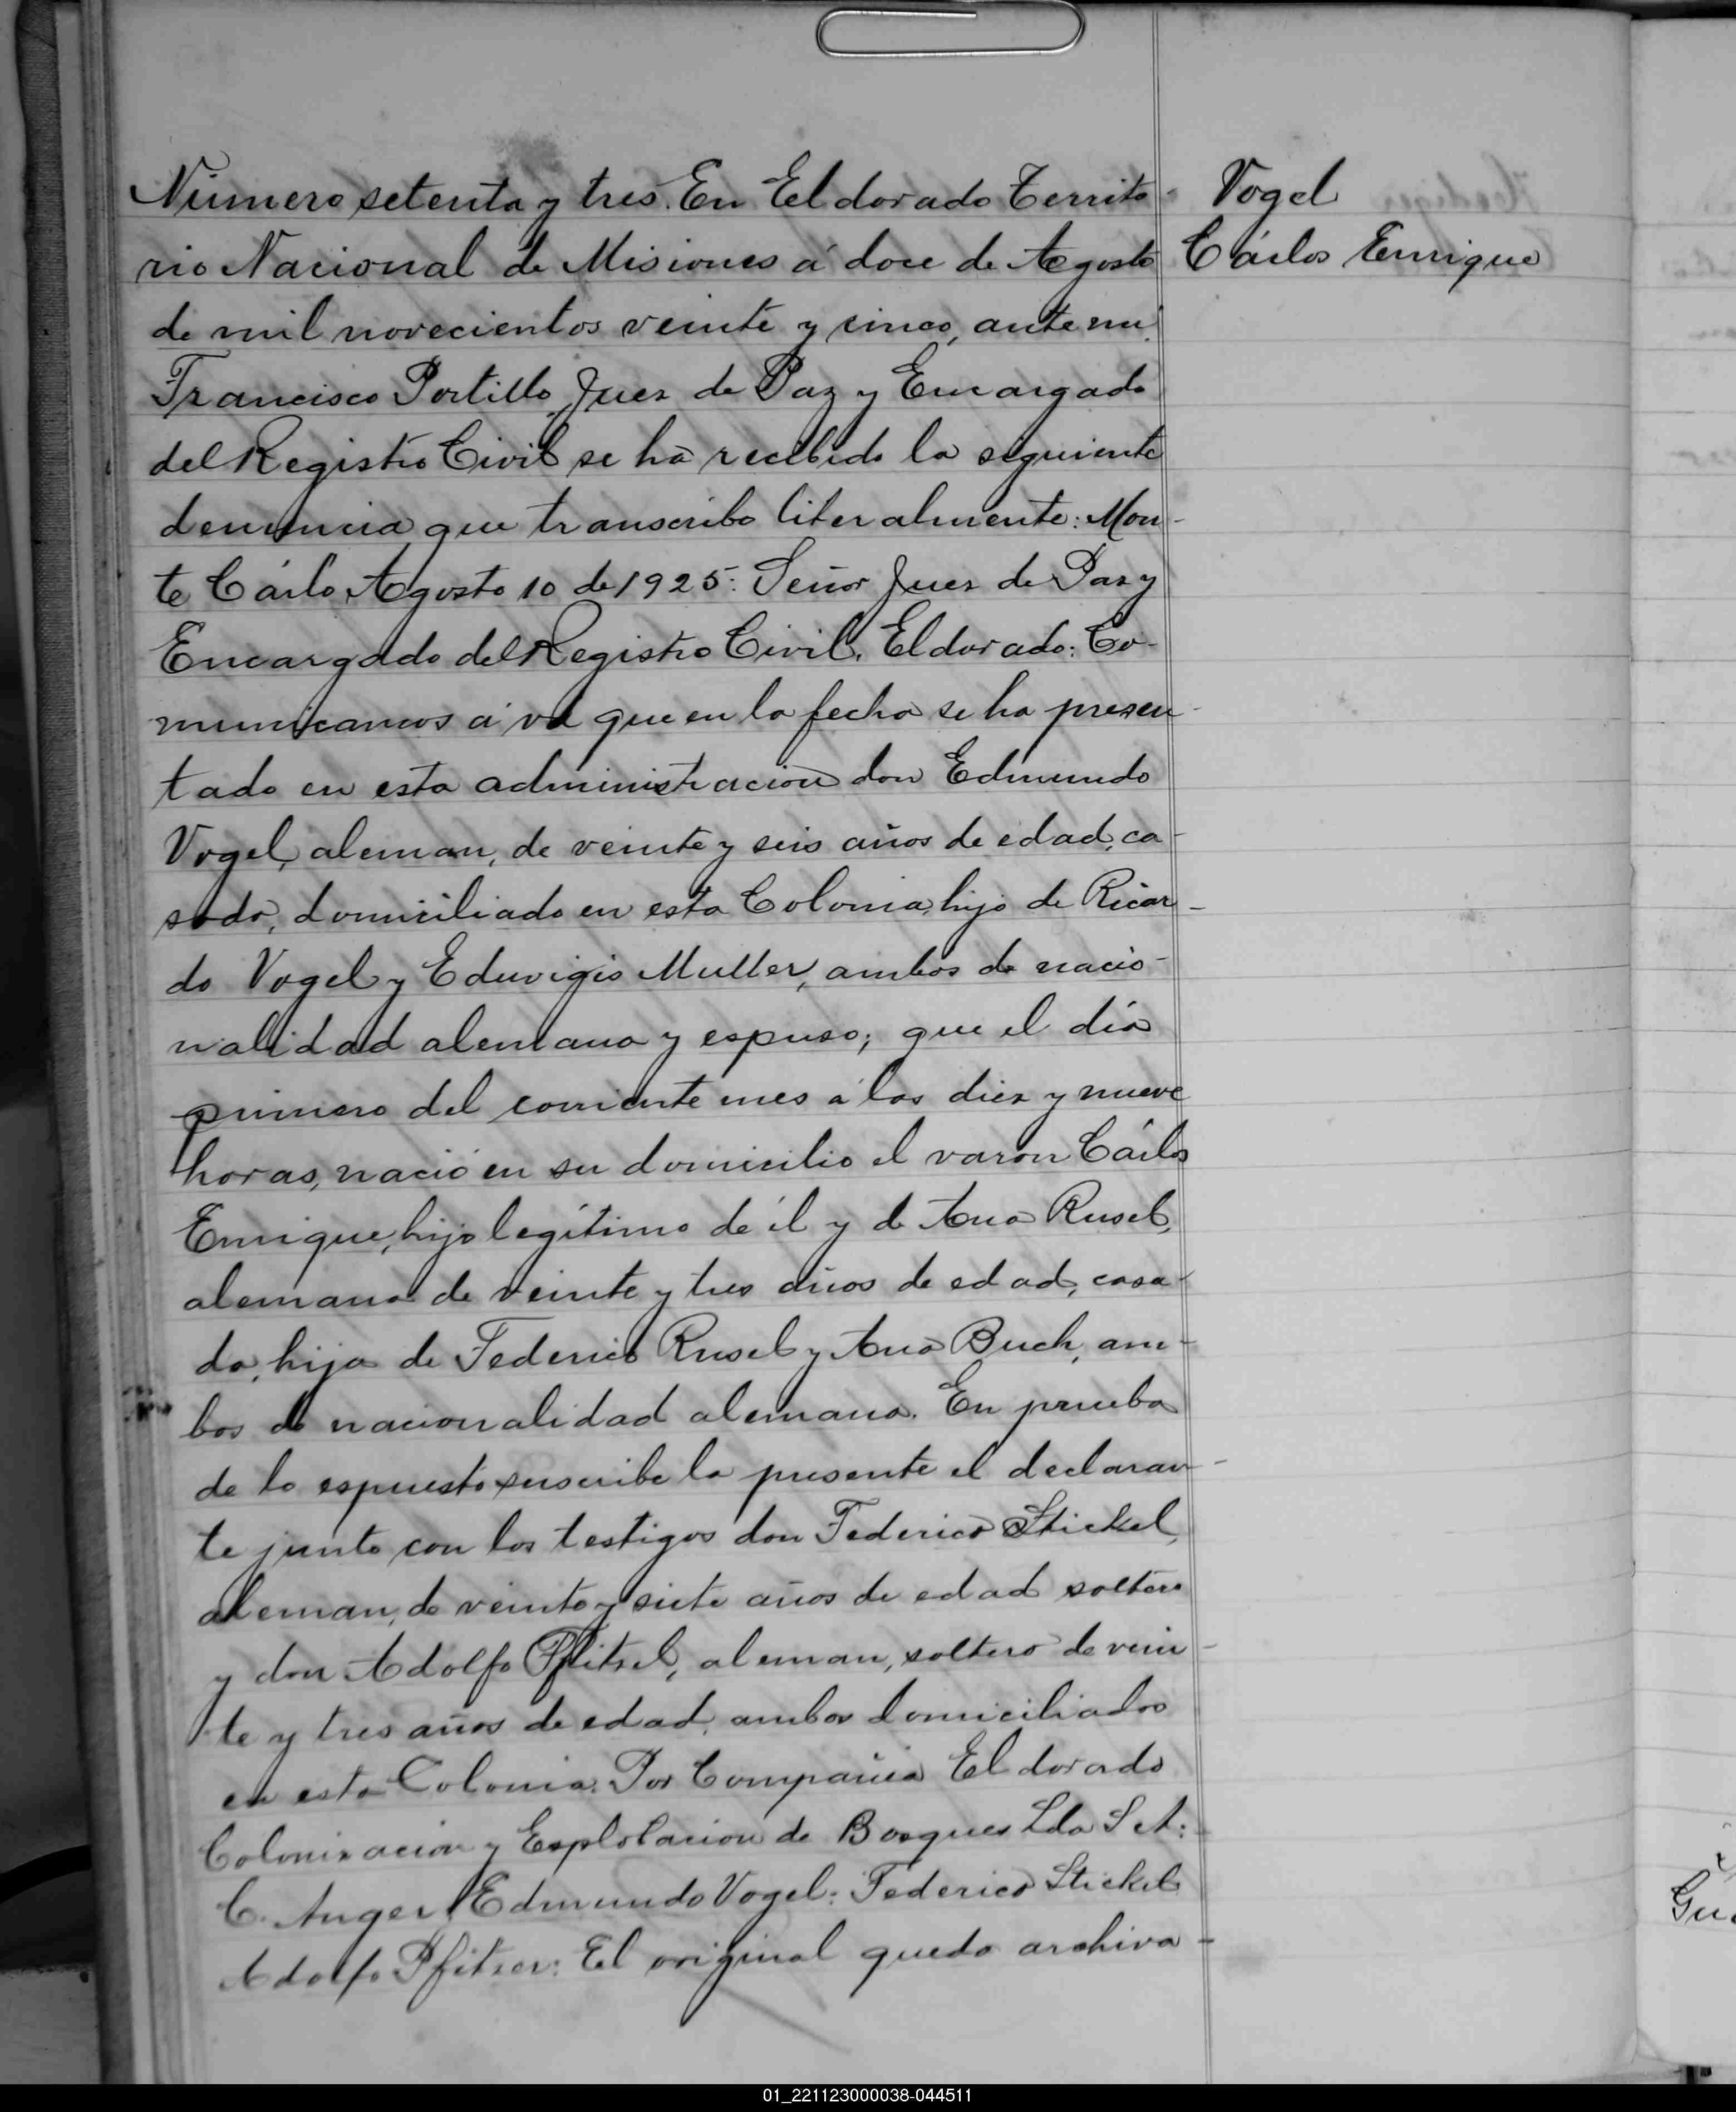 Número setenta y tres. En Eldorado Territo-
rio Nacional de Misiones á doce de Agosto
de mil novecientos veinte y cinco, ante mi
Francisco Portillo, Juez de Paz y Encargado
del Registro Civil se ha recibido la siguiente
denuncia que transcribo literalmente: Mon-
te Cárlo, Agosto 10 de 1925: Señor Juez de Paz y
Encargado del Registro Civil. Eldorado: Co-
municamos á vd que en la fecha se ha presen-
tado en esta administracion don Edmundo
Vogel, aleman, de veinte y seis años de edad, ca-
sado, domiciliado en esta Colonia, hijo de Ricar-
do Vogel y Eduvigis Muller, ambos de nacio-
nalidad alemana y espuso; que el día
primero del corriente mes á las diez y nueve
horas, nació en su domicilio el varon Cárlos
Enrique, hijo legítimo de él y de Ana Rusel,
alemana de veinte y tres años de edad, casa-
da, hija de Federico Rusel y Ana Buch, am-
bos de nacionalidad alemana. En prueba
de lo espuesto suscribe la presente el declaran-
te junto con los testigos don Federico Stickel,
aleman, de veinte y siete años de edad soltero
y don Adolfo, aleman, soltero de vein-
te y tres años de edad, ambos domiciliados
en esta Colonia. Por Compañia Eldorado
Colonizacion y Esplotacion de Bosques Lda S A:
C. Auger: Edmundo Vogel: Federico Stickel
Adolfo Pfitzer: El original queda archiva-
Vogel
Cárlos Enrique
01_221123000038-044511